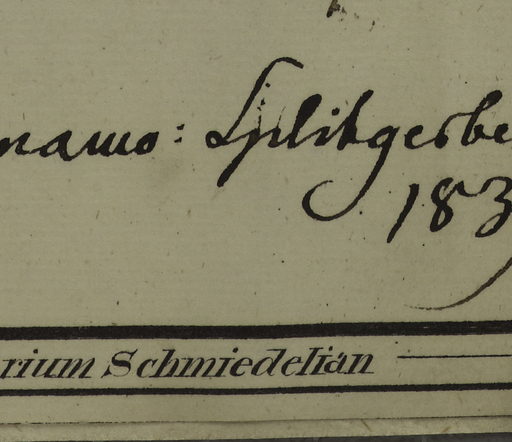 namo: Splitgerbe
183
rium Schmiedelian